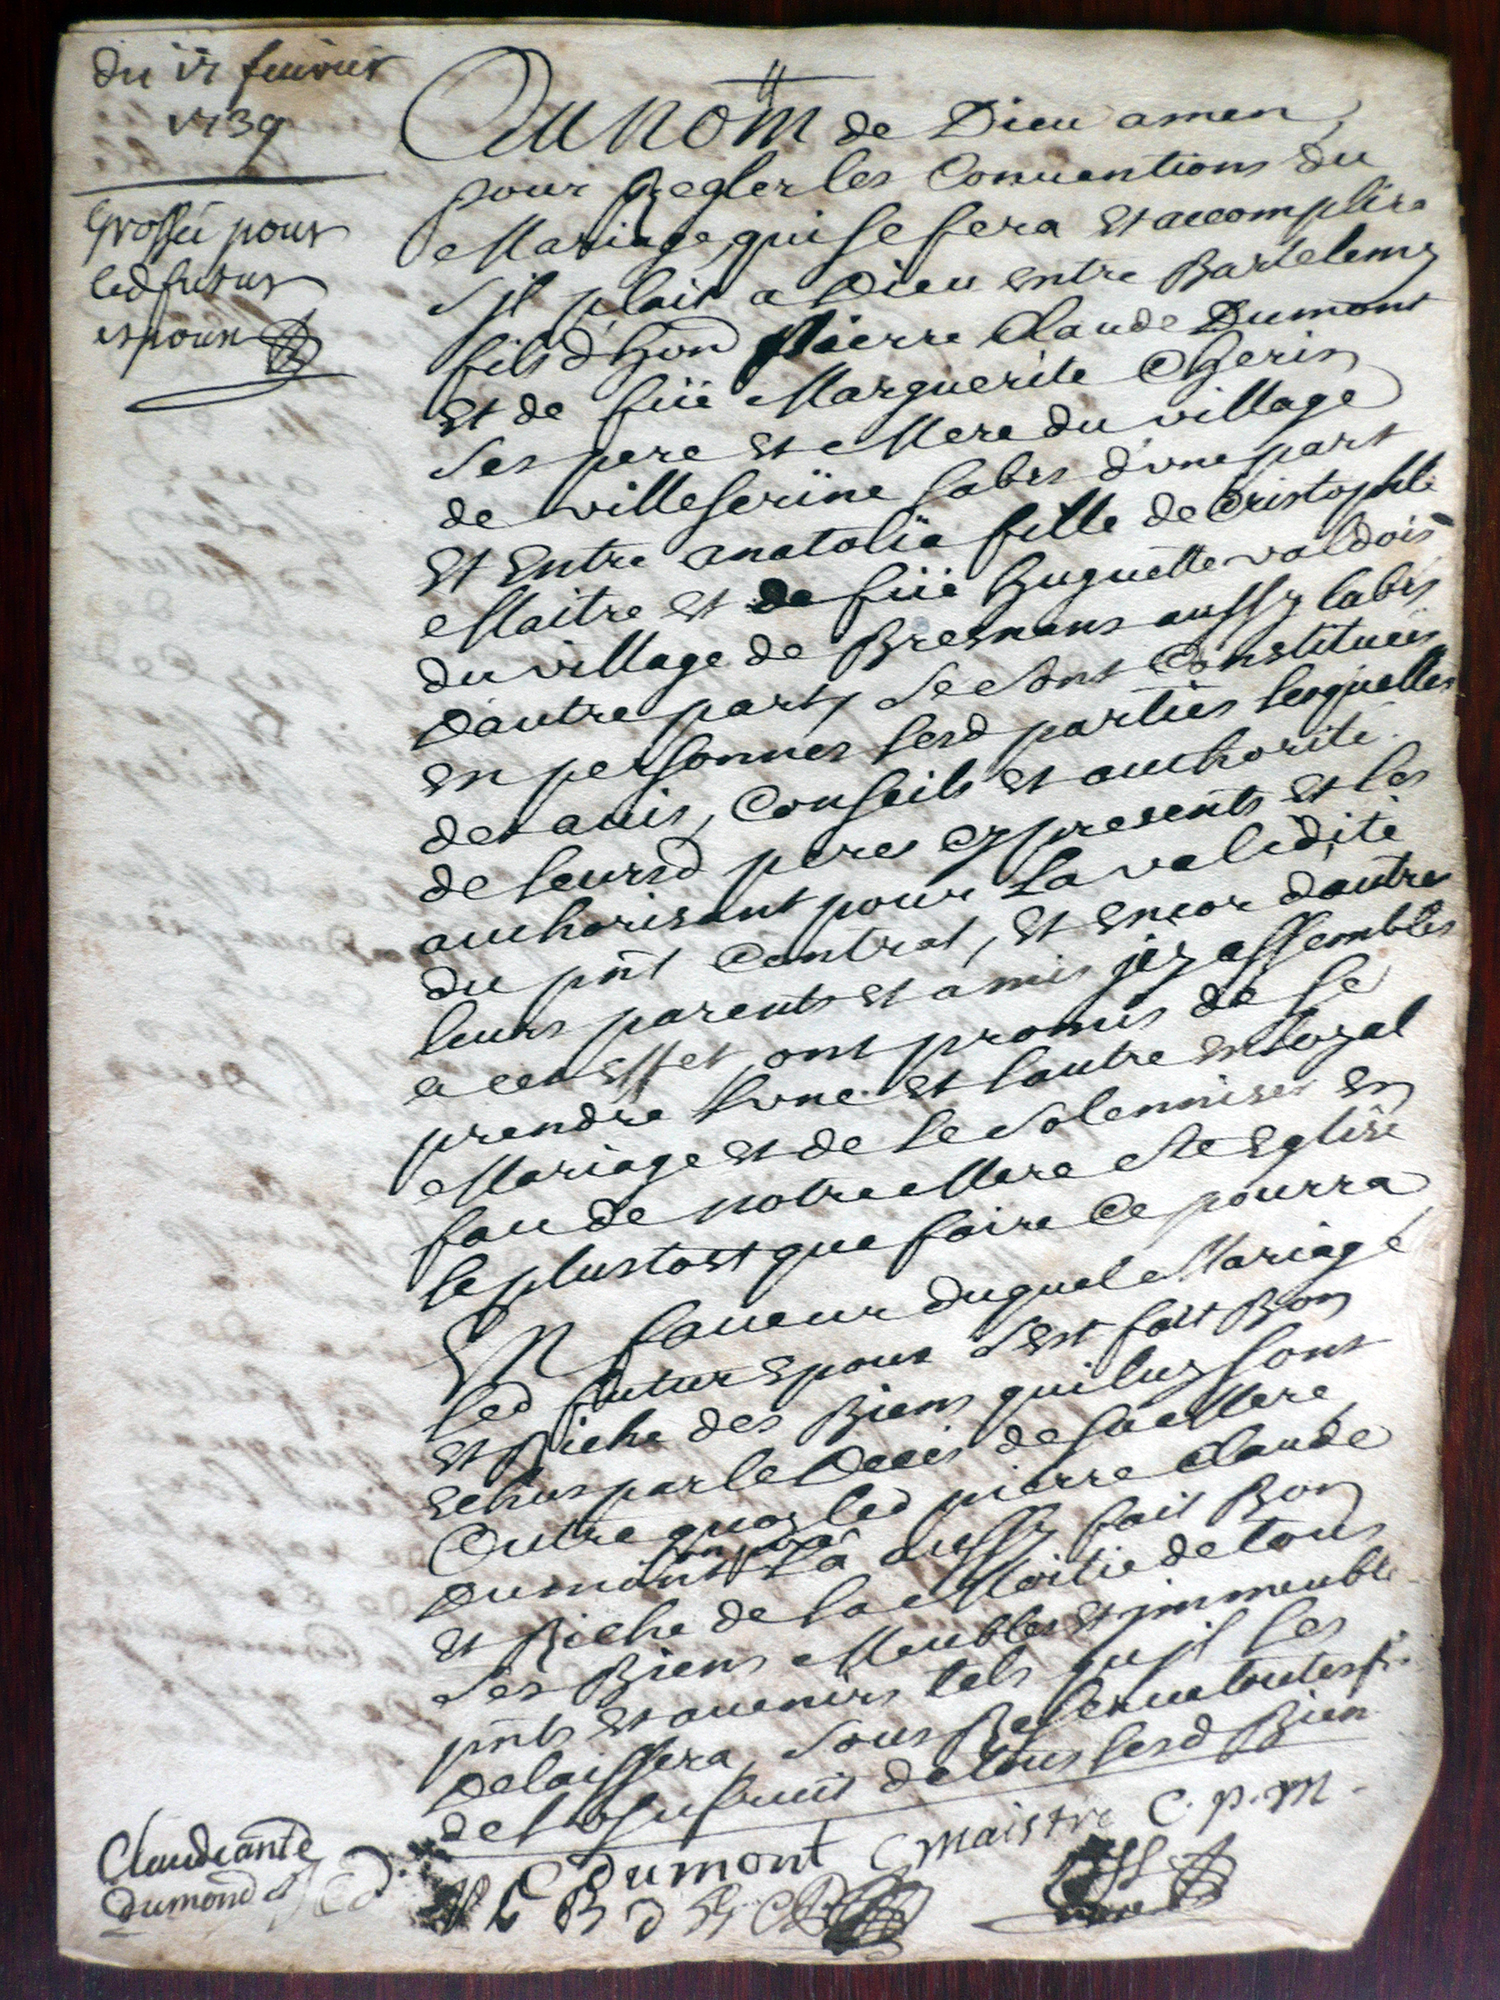 du 17 fevrier
1739
Grossé pour
led futur
espoux
Au nom de Dieu amen,
pour Regler les Conuentions du
Mariage qui se fera et accomplira
s'jl plait a Dieu entre Bartelemy
fils d'hon Pierre Claude Dumont
et de füe Marguerite Cherin
ses pere et Mere du village
de villeserine labrs d'vne part
et Entre anatolia fille de Cristophle
Maitre et de füe huguette valdois
du village de Bresnans aussy labrs
D'autre part, se sont Constitueis
en personnes lesd parties lesquelles
de l'auis, Conseils et authorité
de leursd peres cy presents et les
authorisant pour La validité
du pnt Contrat, et encor d'autres
leurs parents et amis jcy assemblés
a cet effet, ont promis de se
prendre l'vne et l'autre en loyal
Mariage et de le solenniser en
face de notre Mere Ste Eglise
le plustost que faire ce pourra
En faueur duquel Mariage
led futur Epoux s'est fait Bon
et Riche des Biens qui luy sont
echus par le Deces de sa Mere,
Outre quoy led pierre Claude
Dumont L'a aussy fait Bon
et Riche de la Moitié de tous
ses Biens Meubles et jmmeubles
pnts et auenirs tels qu'jl les
delaissera, sous Reserue toutesfois
de l'Vsufruit de tous lesd Bien
Claudeante
dumond
C Dumont C Maistre C. p. M.